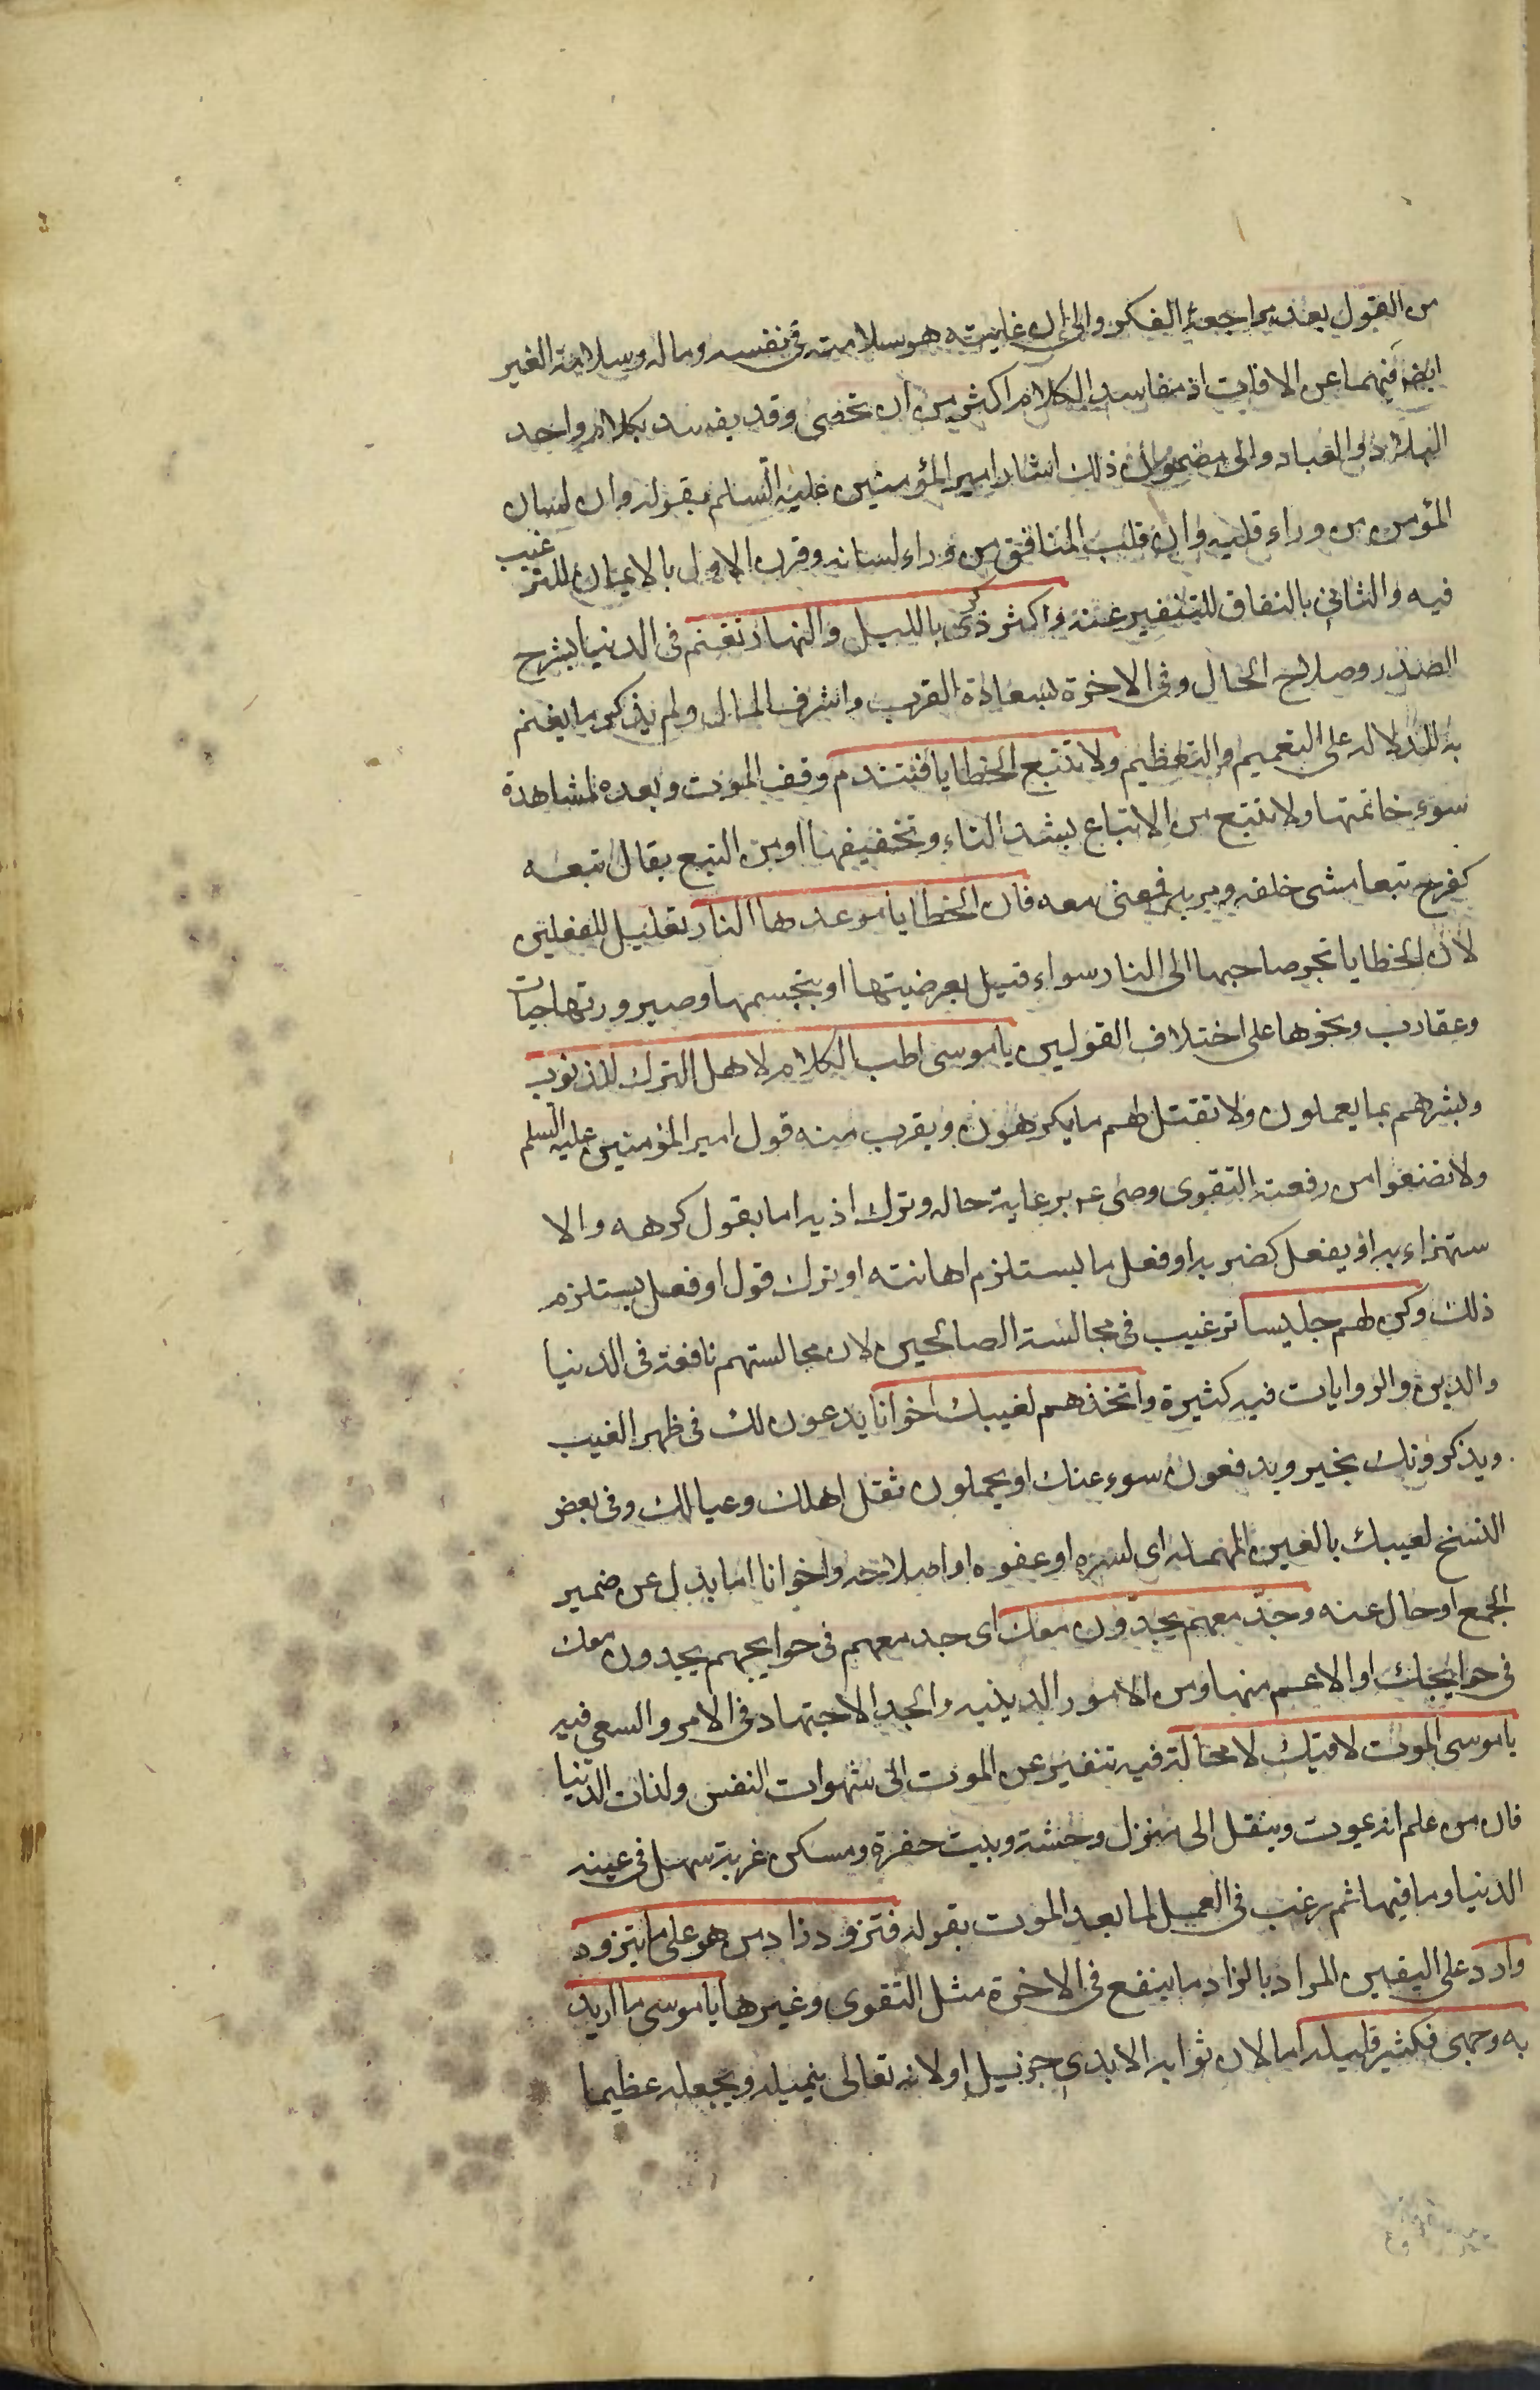 من القول بعد مراجعة الفكر والى ان غايته هو سلامته فى نفسه وماله وسلامة الغير
ايضا فيهما عن الافات اذ مفاسد الكلام اكثر من ان تحصى وقد يفسد بكلام واحد
البلاد والعباد والى مضمون ذلك اشار امير المؤمنين عليه السلم بقوله وان لسان
المؤمن من وراء قلبه وان قلب المنافق من وراء لسانه وقرن الاول بالايمان للترغيب
فيه والثانى بالنفاق للتنفير عنه واكثر ذكرى بالليل والنهار تغنم فى الدنيا بشرح
الصدر وصلاح الحال وفى الاخرة بسعادة القرب واشرف المنال ولم يذكر ما يغنم
به للدلالة على التعميم والتعظيم ولا تتبع الخطايا فتندم وقف الموت وبعده لمشاهدة
سوء خاتمتها ولا تتبع من الاتباع بشد التاء وتخفيفها او من التبع يقال تبعه
كفرح تبعا مشى خلفه ومر به فمضى معه فان الخطايا موعدها النار تعليل للفعلين
لان الخطايا تجر صاحبها الى النار سواء قيل بعرضيتها او بتجسمها وصيرورتها حيات
وعقارب ونحوها على اختلاف القولين يا موسى اطب الكلام لاهل الترك للذنوب
وبشرهم بما يعملون ولا تقتل لهم ما يكرهون ويقرب منه قول امير المؤمنين عليه السلم
ولا تضعوا من رفعته التقوى وصى عم برعاية حاله وترك اذيه اما بقول كرهه والا
ستهزاء به او بفعل كضربه او فعل ما يستلزم اهانته او بترك قول او فعل يستلزم
ذلك وكن لهم جليسا ترغيب فى مجالسة الصالحين لان مجالستهم نافعة فى الدنيا
والدين والروايات فيه كثيرة واتخذهم لغيبك اخوانا يدعون لك فى ظهر الغيب
ويذكرونك بخير ويدفعون سوء عنك او يحملون ثقل اهلك وعيالك وفى بعض
النسخ لعيبك بالعين المهملة اى لستره او عفوه او اصلاحه واخوانا اما بدل عن ضمير
الجمع او حال عنه وجد معهم يجدون معك اى جد معهم فى حوايجهم يجدون معك
فى حوايجك او الاعم منها ومن الامور الدينيه والجد الاجتهاد فى الامر والسعى فيه
يا موسى الموت لاقيك لا محالة فيه تنفير عن الموت الى شهوات النفس ولذات الدنيا
فان من علم انه يموت وينقل الى منزل وحشة وبيت حفرة ومسكن غربة سهل فى عينه
الدنيا وما فيها ثم رغب فى العمل لما بعد الموت بقوله فتزود زاد من هو على ما يتزود
وارد على اليقين المراد بالزاد ما ينفع فى الاخرة مثل التقوى وغيرها يا موسى ما اريد
به وجهى فكثير قليله اما لان ثوابه الابدى جزيل او لانه تعالى ينميله ويجعله عظيما